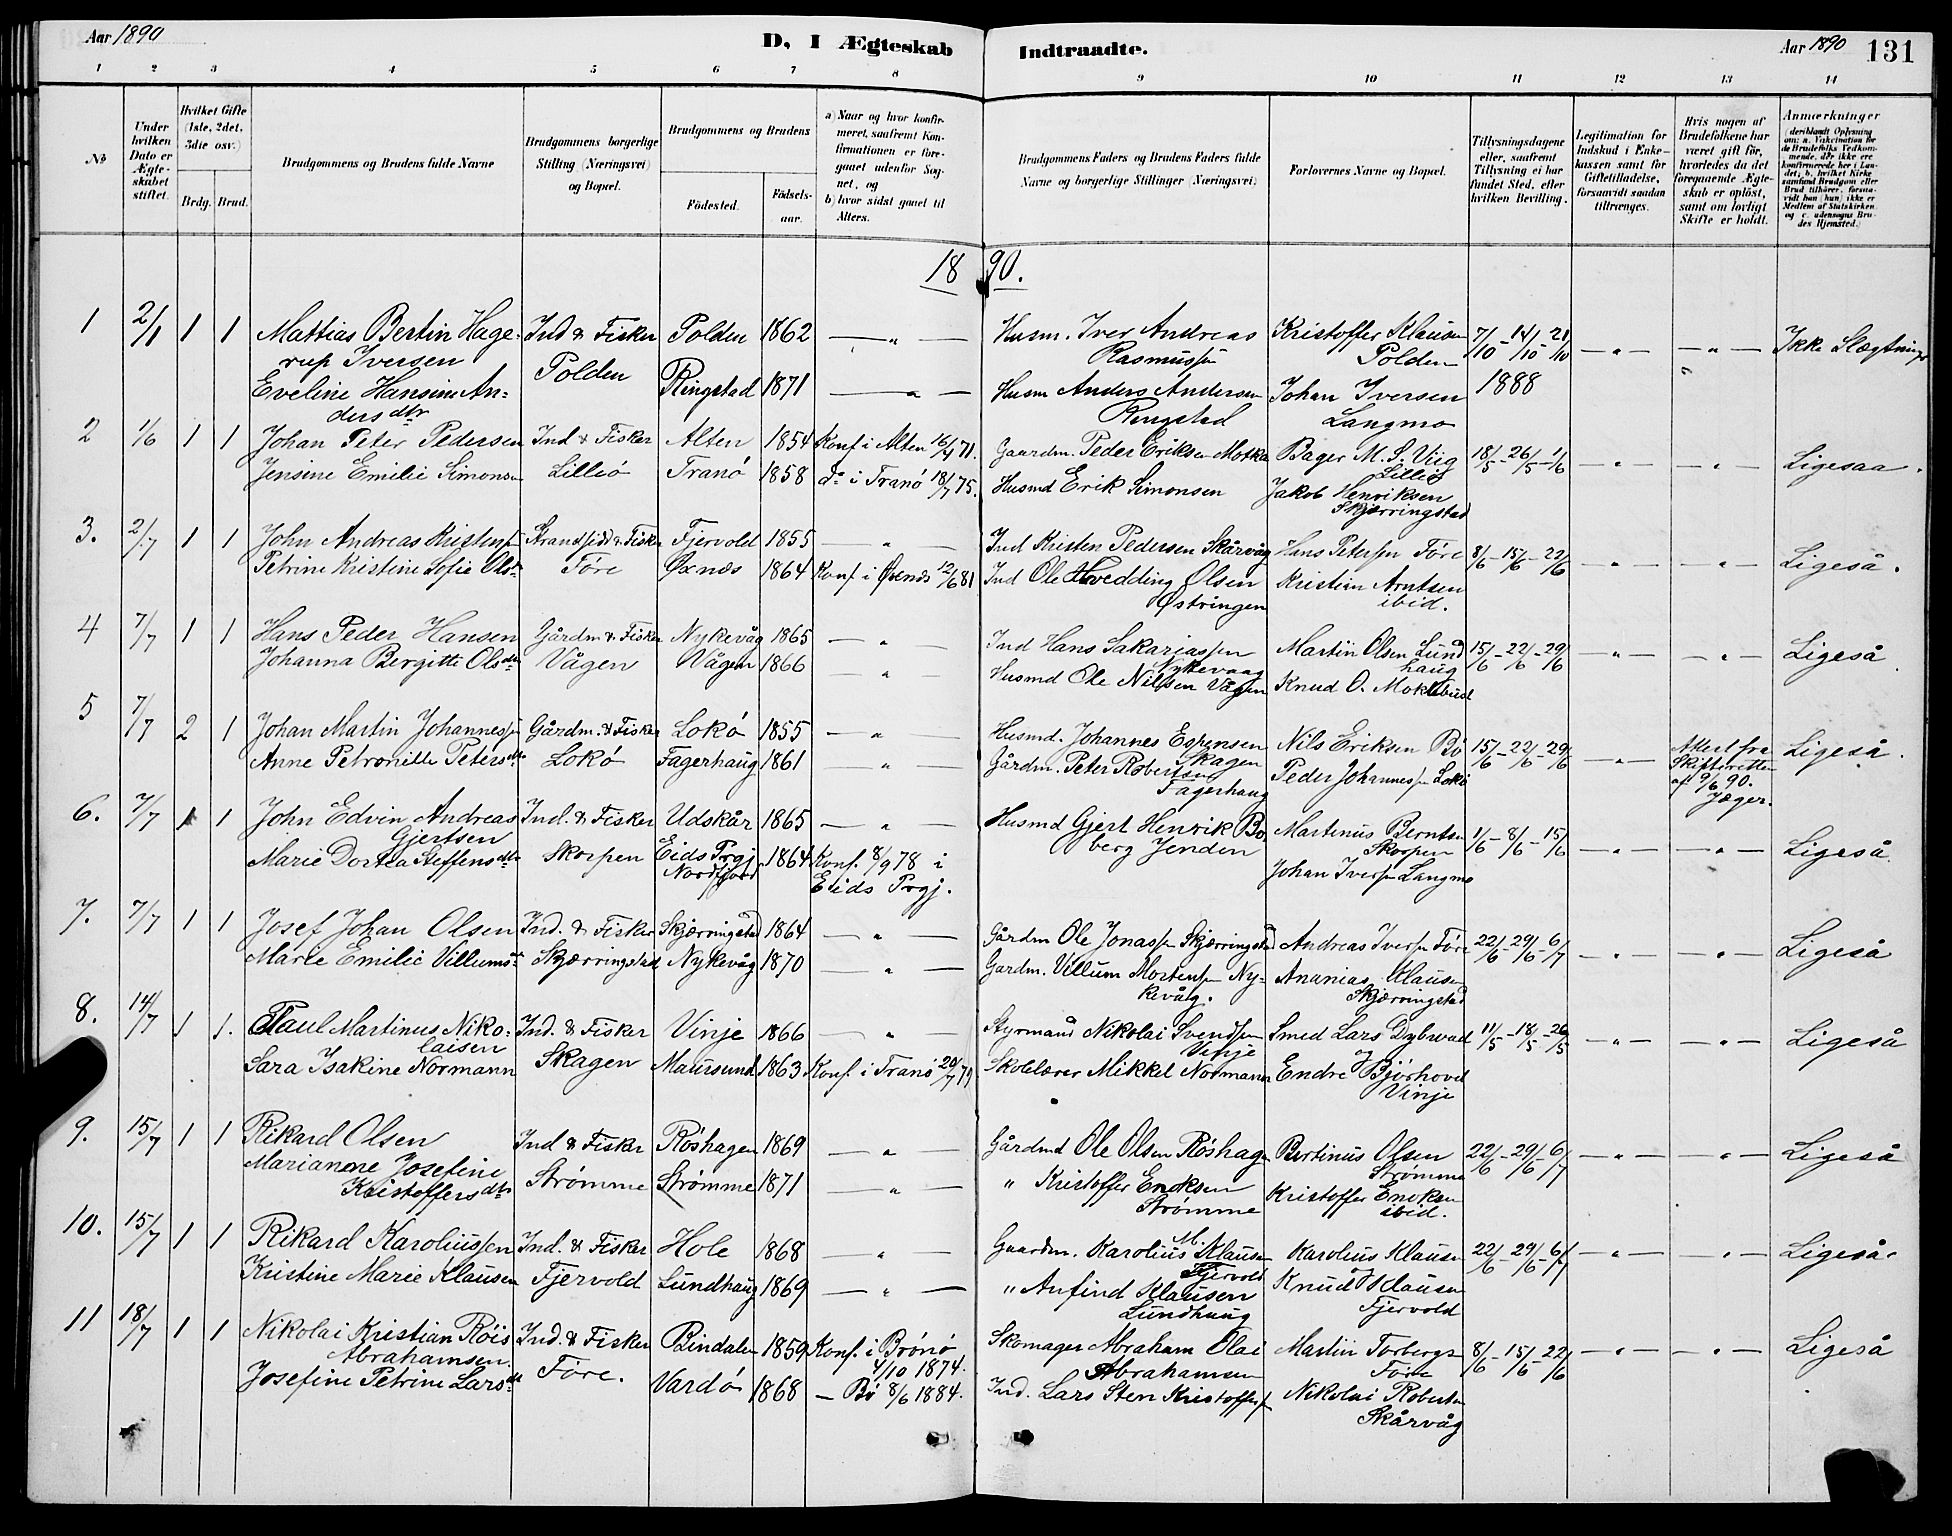 Aar 1890
D, I Ægteskab Indtraadte.
Aar 1890 131
1 2 3 4 5 6 7 8 9 10 11 12 13 14
No
Under hvilken Dato er Ægteskabet stiftet.
Hvilket Gifte (1ste, 2det, 3die osv.)
Brdg. Brud.
Brudgommens og Brudens fulde Navne
Brudgommens borgerlige Stilling (Næringsvei) og Bopæl.
Brudgommens og Brudens
Fødested.
Fødselsaar.
a) Naar og hvor konfirmeret, saafremt Konfirmationen er foregaaet udenfor Sognet, og
b) hvor sidst gaaet til Alters.
Brudgommens Faders og Brudens Faders fulde Navne og borgerlige Stillinger (Næringsvei)
Forlovernes Navne og Bopæl.
Tillysningsdagene eller, saafremt Tillysning ei har fundet Sted, efter hvilken Bevilling.
Legitimation for Indskud i Enkekassen samt for Giftetilladelse, forsaavidt saadan tiltrænges.
Hvis nogen af Brudefolkene har været gift før, hvorledes da det foregaaende Ægteskab er opløst, samt om lovligt Skifte er holdt.
Anmærkninger (deriblandt Oplysning om: a. Vakcination for de Brudefolks Vedkommende, der ikke ere konfirmerede her i Landet; b. hvilket Kirkesamfund Brudgom eller Brud tilhører, forsaavidt han (hun) ikke er Medlem af Statskirken og c. udensogns Brudes Hjemsted.)
18 90.
1 2/1 1 1 Mattias Bertin Hage- Ind & Fisker Polden 1862 — " — Husm. Iver Andreas Kristoffer Klausen 7/10 - 14/10 - 21/10 — " — — " — Ikke Slægtninge
rup Iversen Polden Rasmussen Polden
Eveline Hansine An- Ringstad 1871 — " — Husm Anders Andersen Johan Iversen 1888
dersdtr Ringstad Langmo
2 1/6 1 1 Johan Peter Pedersen Ind & Fisker Alten 1854 Konf i Alten 16/4 71. Gaardm. Peder Eriksen Motka Bager M. S. Viig 18/5 - 26/5 - 1/6 — " — — " — Ligesaa.
Lilleö
Jensine Emilie Simonsen Lilleö Tranö 1858 do i Tranö 18/7 75. Husmd Erik Simonsen Jakob Henriksen
Skjærringstad
3. 2/7 1 1 John Andreas Kristensen Strandsidd & Fisker Fjervold 1855 — " — Ind Kristen Pedersen Skårvåg Hans Petersen Före 8/6 - 15/6 - 22/6 — " — — " — Ligeså.
Petrine Kristine Sofie Olsdr Före Øxnæs 1864 Konf. i Øxnæs 12/6 81 Ind Ole Hvedding Olsen Kristian Arntsen
Østringen ibid.
4 7/7 1 1 Hans Peder Hansen Gårdm & Fisker Nykevåg 1865 — " — Ind Hans Sakariassen Martin Olsen Lund 15/6 - 22/6 - 29/6 — " — — " — Ligeså
Nykevaag haug
Johanna Bergitte Olsdtr Vågen Vågen 1866 — " — Husmd Ole Nilsen Vågen Knud O. Moklebust
5 7/7 2 1 Johan Martin Johannessen Gårdm. & Fisker Lokö 1855 — " — Husmd. Johannes Espensen Nils Eriksen Bö 15/6 - 22/6 - 29/6 — " — Attest fra Ligeså.
Skagen Skifteretten
Anne Petronille Petersdtr Lokö Fagerhaug 1861 — " — Gårdm. Peter Robertsen Peder Johannessen Lokö af 9/6 90.
Fagerhaug Jæger.
6. 7/7 1 1 John Edvin Andreas Ind. & Fisker Udskår 1865 — " — Husmd Gjert Henrik Bo Martinus Berntsen 1/6 - 8/6 - 15/6 — " — — " — Ligeså
Gjertsen berg Jenden Skorpen
Marie Dortea Steffensdtr Skorpen Eids Prgj. Nordfjord 1864 Konf. 8/9 78 i Eids Prgj. Johan Iversen Langmo
7. 7/7 1 1 Josef Johan Olsen Ind. & Fisker Skjærringstad 1864 — " — Gårdm Ole Jonassen Skjærringstad Andreas Iversen Före 22/6 - 29/6 - 6/7 — " — — " — Ligeså
Marie Emilie Villumsdr Skjærringstad Nykevåg 1870 — " — Gardm. Villum Mortensen Ny- Ananias Klausen
kevåg. Skjærringstad
8. 14/7 1 1. Paul Martinus Niko- Ind. & Fisker Vinje 1866 — " — Styrmand Nikolai Svendsen Smed Lars Dybwad 11/5 - 18/5 - 26/5 — " — — " — Ligeså
laisen Vinje
Sara Isakine Normann Skagen Maursund 1863 Konf. i Tranö 20/7 79 Skolelærer Mikkel Normann Endre Bjørhovd
Vinje
9. 15/7 1 1 Rikard Olsen Ind & Fisker Röshagen 1869 — " — Gårdmd Ole Olsen Röshagen Bertinus Olsen 22/6 - 29/6 - 6/7 — " — — " — Ligeså
Strømme
Marianne Josefine Strømme Strømme 1871 — " — " Kristoffer Enoksen Kristoffer Enoksen
Kristoffersdtr Strømme ibid.
10. 15/7 1 1 Rikard Karoliussen Ind. & Fisker Hole 1868 — " — Gaardm. Karolius M. Klausen Karolius Klausen 22/6 - 29/6 - 6/7 — " — — " — Ligeså.
Fjervold
Kristine Marie Klausen Fjervold Lundhaug 1869 — " — " Anfind Klausen Knud Klausen
Lundhaug Fjervold
11 18/7 1 1 Nikolai Kristian Röis Ind. & Fisker Bindalen 1859 Konf. i Brönö Skomager Abraham Olai Martin Torbergs 8/6 - 15/6 - 22/6 — " — — " — Ligeså
Abrahamsen. Före. 4/10 1874. Abrahamsen Före
Josefine Petrine Larsdtr Vardö 1868 — Bö 8/6 1884. Ind. Lars Sten Kristoffersen Nikolai Robertsen
Skårvåg